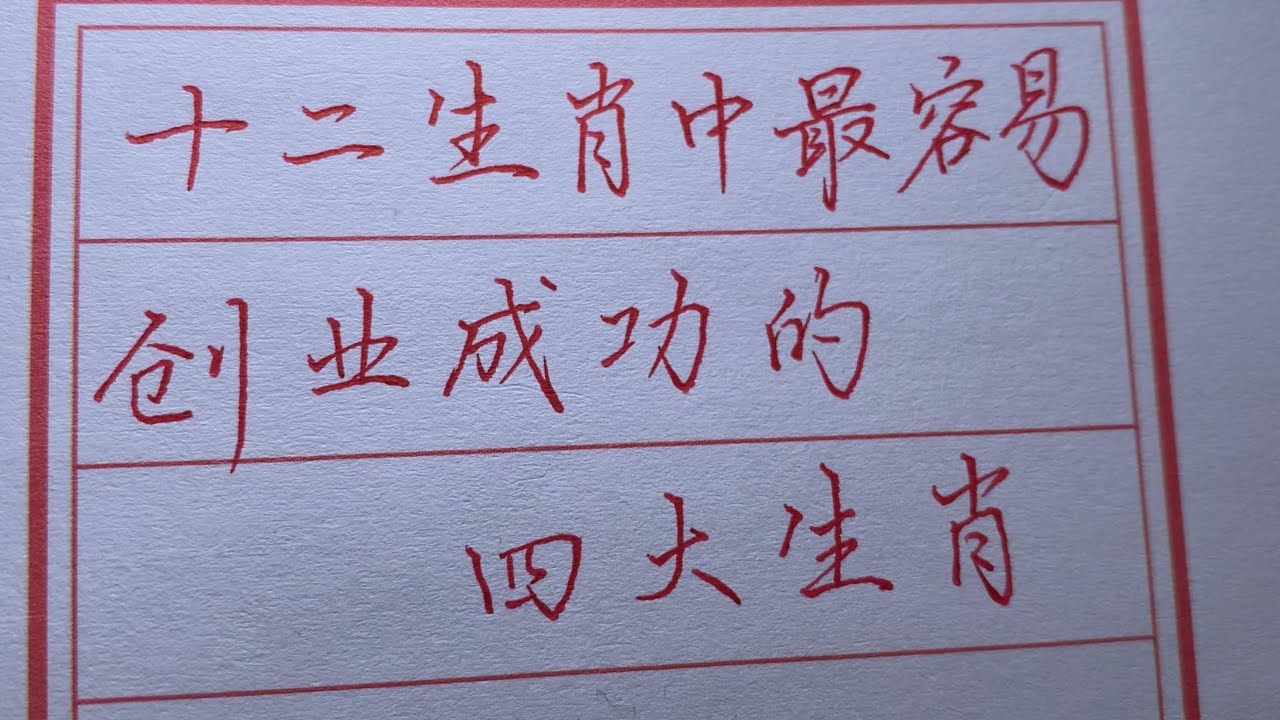 十二生肖中最容易
创业成功的
四大生肖